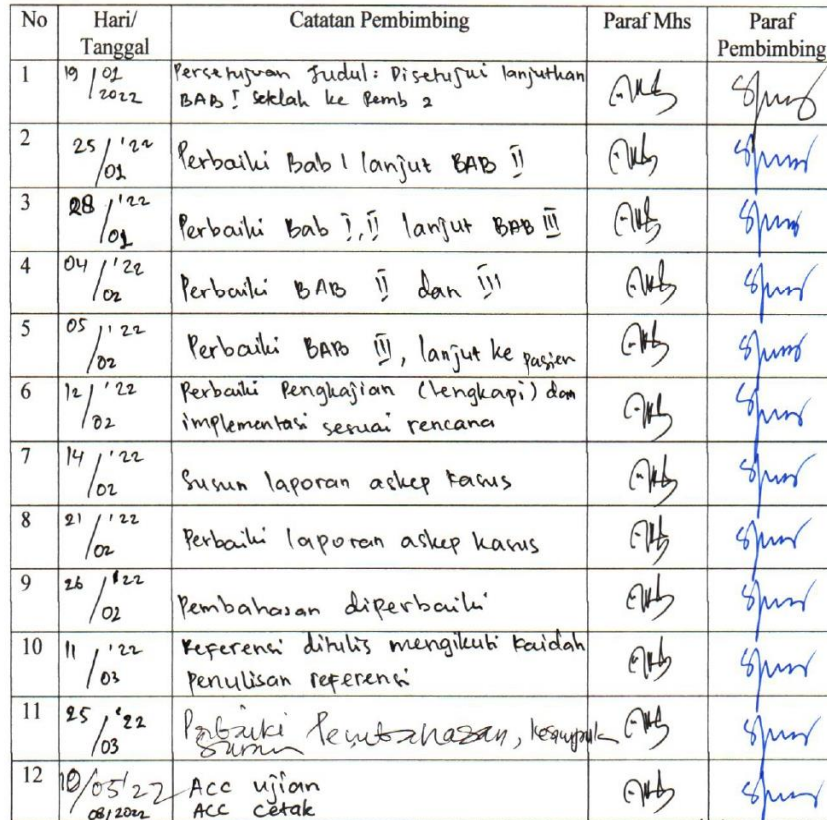 No Hari/ Tanggal Catatan Pembimbing Paraf Mhs Paraf Pembimbing
1 19/01 2022 Persetujuan Judul: Disetujui lanjutkan
BAB I setelah ke Pemb 2
2 25/01 '22 Perbaiki Bab I lanjut BAB II
3 28/01 '22 Perbaiki Bab I, II lanjut BAB III
4 04/02 '22 Perbaiki BAB II dan III
5 05/02 '22 Perbaiki BAB III, lanjut ke pasien
6 12/02 '22 Perbaiki Pengkajian (lengkapi) dan
implementasi sesuai rencana
7 14/02 '22 Susun laporan askep kasus
8 21/02 '22 Perbaiki laporan askep kasus
9 26/02 '22 Pembahasan diperbaiki
10 11/03 '22 Referensi ditulis mengikuti kaidah
penulisan referensi
11 25/03 '22 Perbaiki Pembahasan,
12 /05/'22 ACC ujian
08/2022 ACC cetak